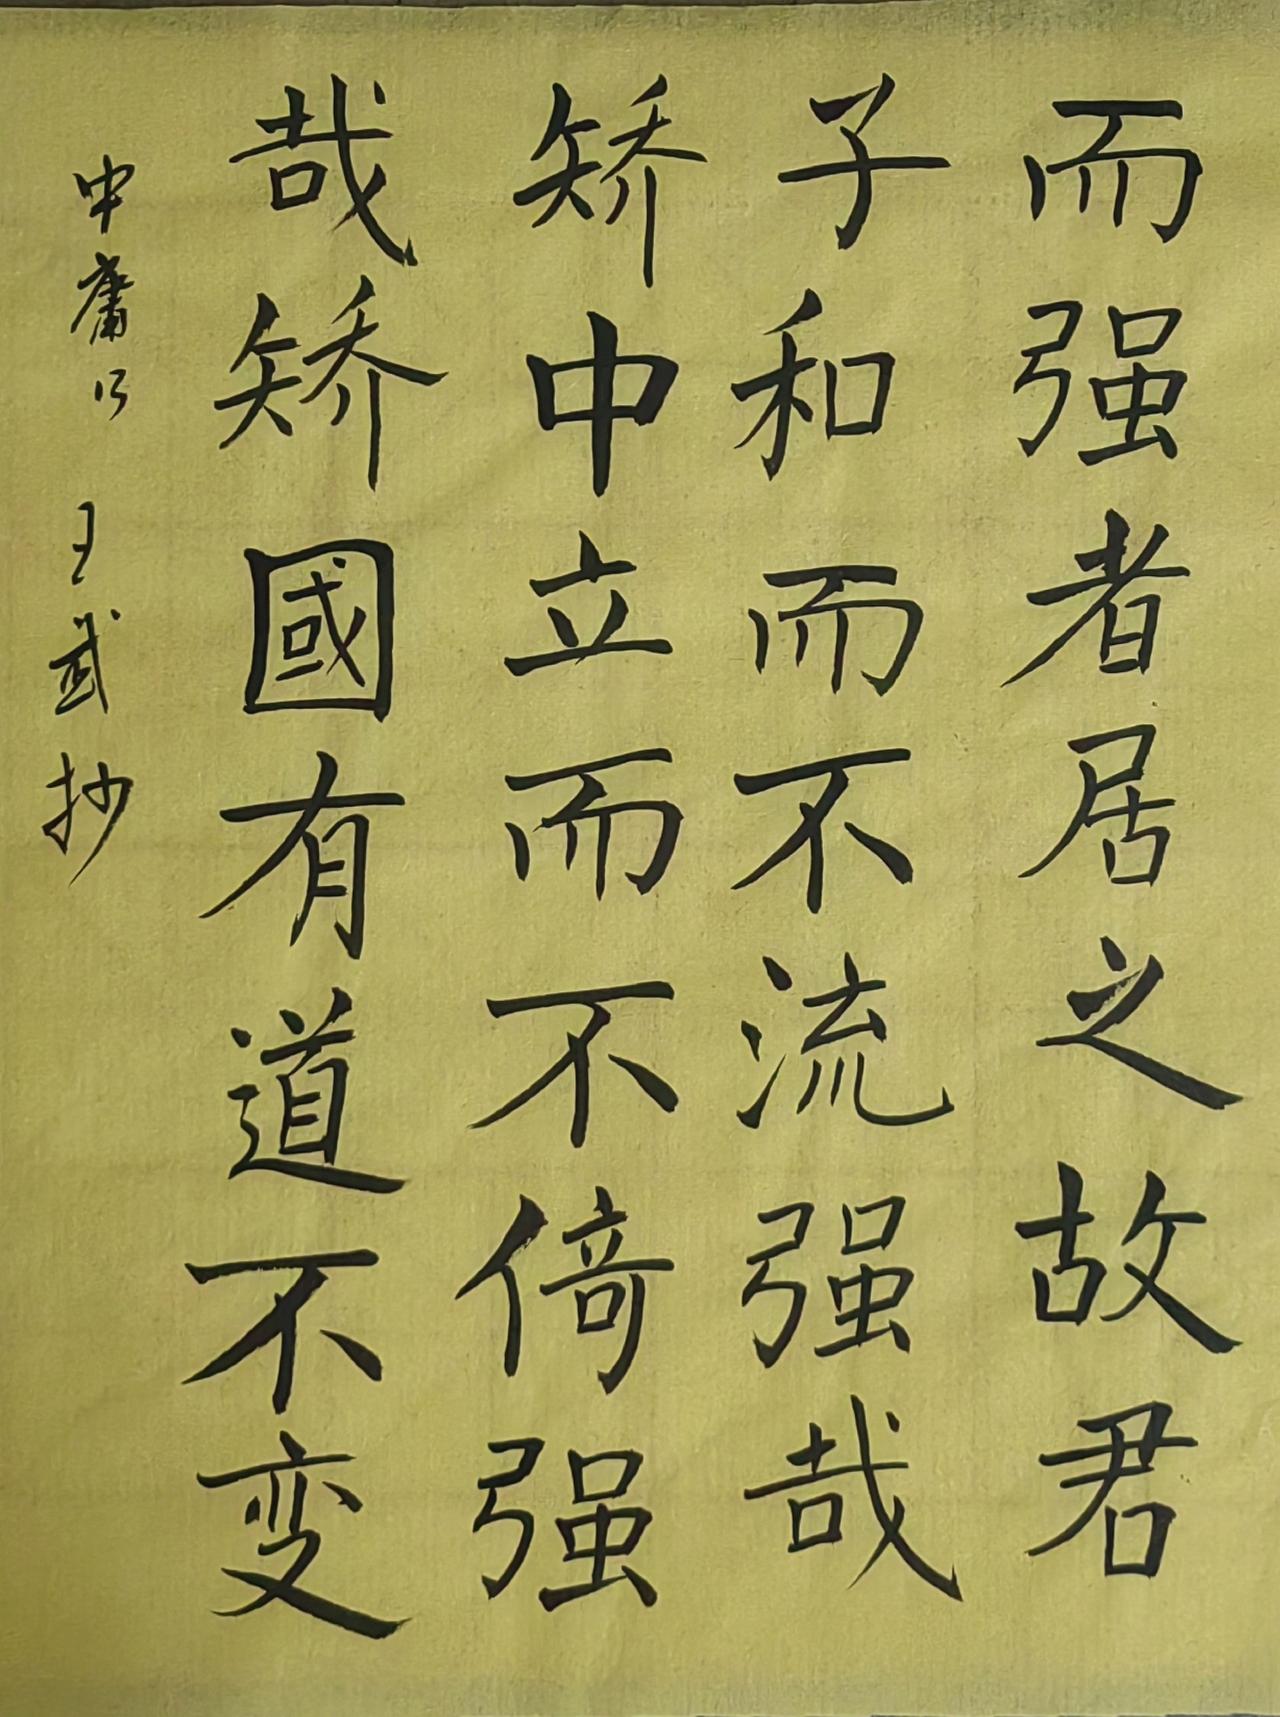 而强者居之故君
子和而不流强哉
矫中立而不倚强
哉矫國有道不变
中庸13 王武抄